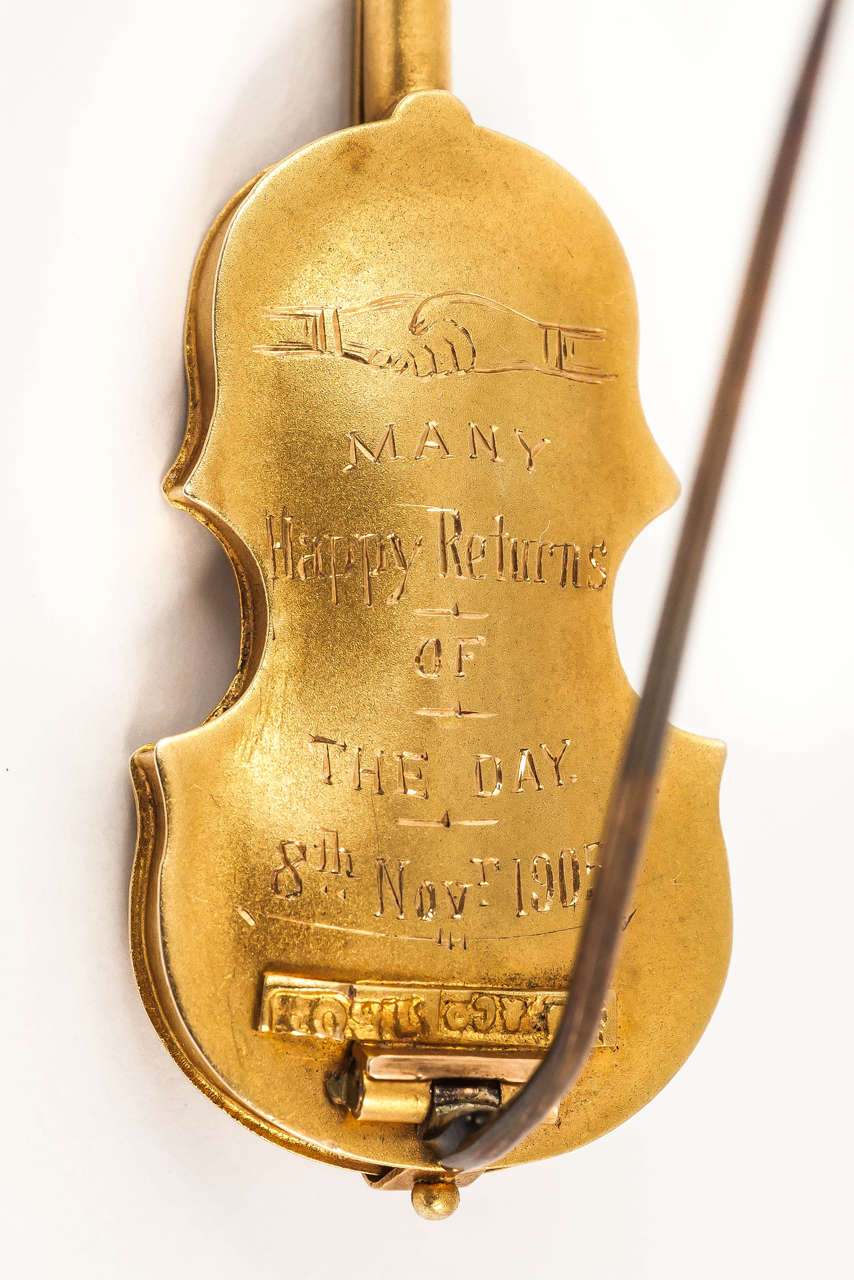 MANY
Happy Returns
OF
THE DAY.
8th Novr 1905